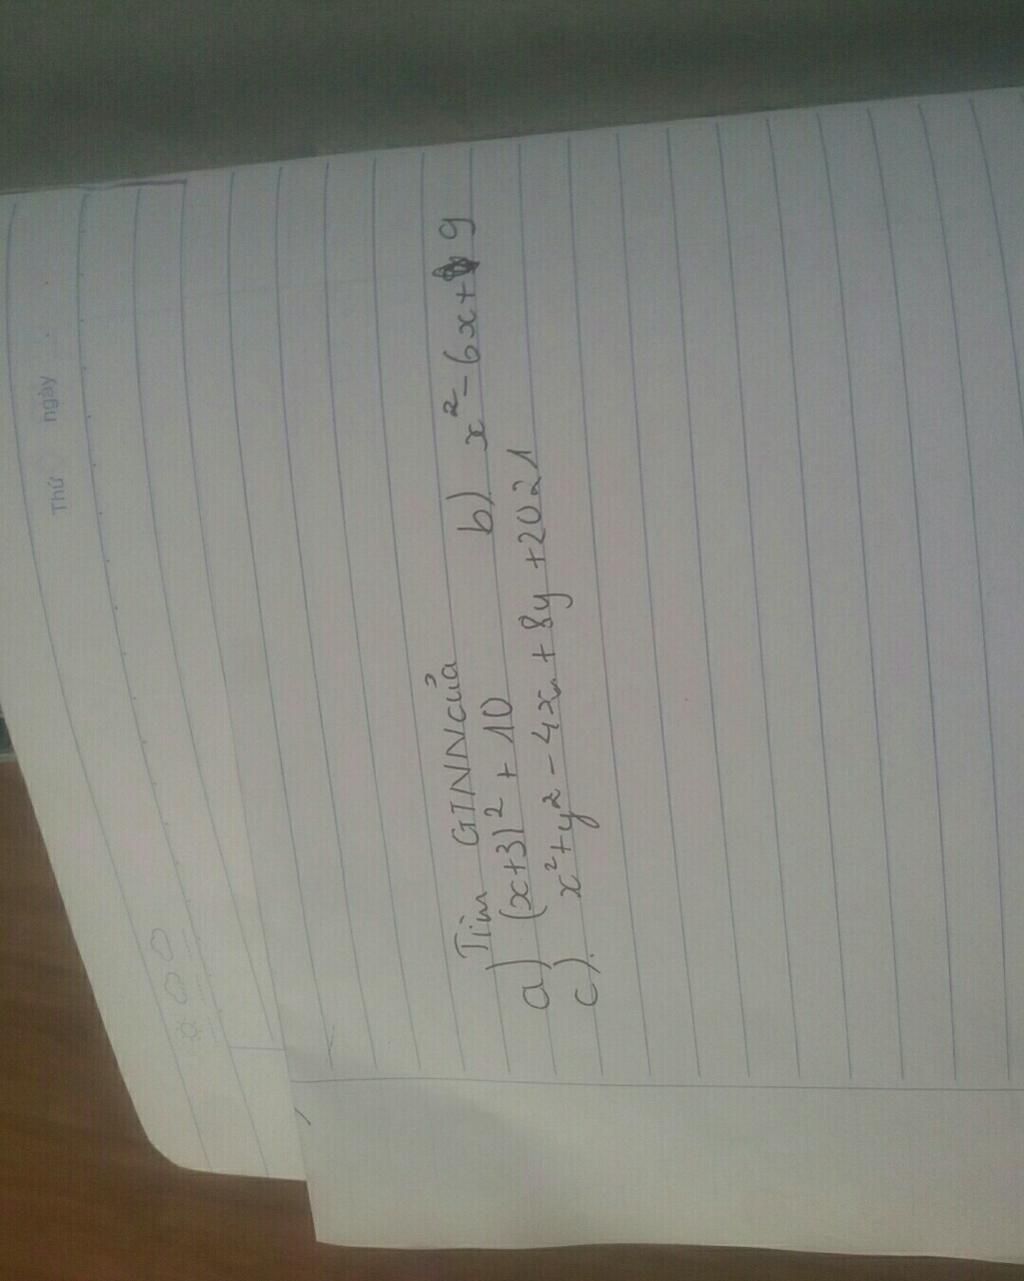 Thứ ngày
Tìm GTNN của
a) (x+3)² + 10 b) x² - 6x + 9
c). x² + y² - 4x + 8y + 2021